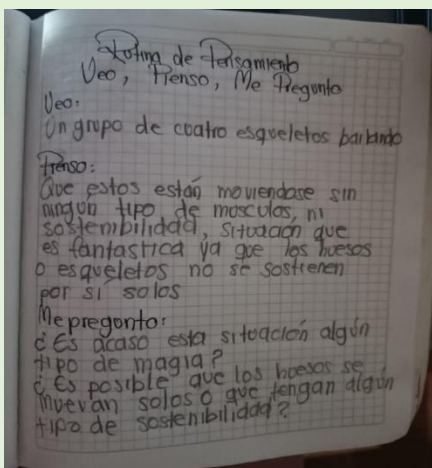 Rutina de Pensamiento
Veo, Pienso, Me Pregunto
Veo:
Un grupo de cuatro esqueletos bailando
Pienso:
Que estos están moviendose sin
ningun tipo de mosculos, ni
sostenibilidad, situación que
es fantastica ya que los huesos
o esqueletos no se sostienen
por si solos
Me pregonto:
¿Es acaso esta situación algún
tipo de magia?
¿Es posible que los huesos se
muevan solos o que tengan algún
tipo de sostenibilidad?